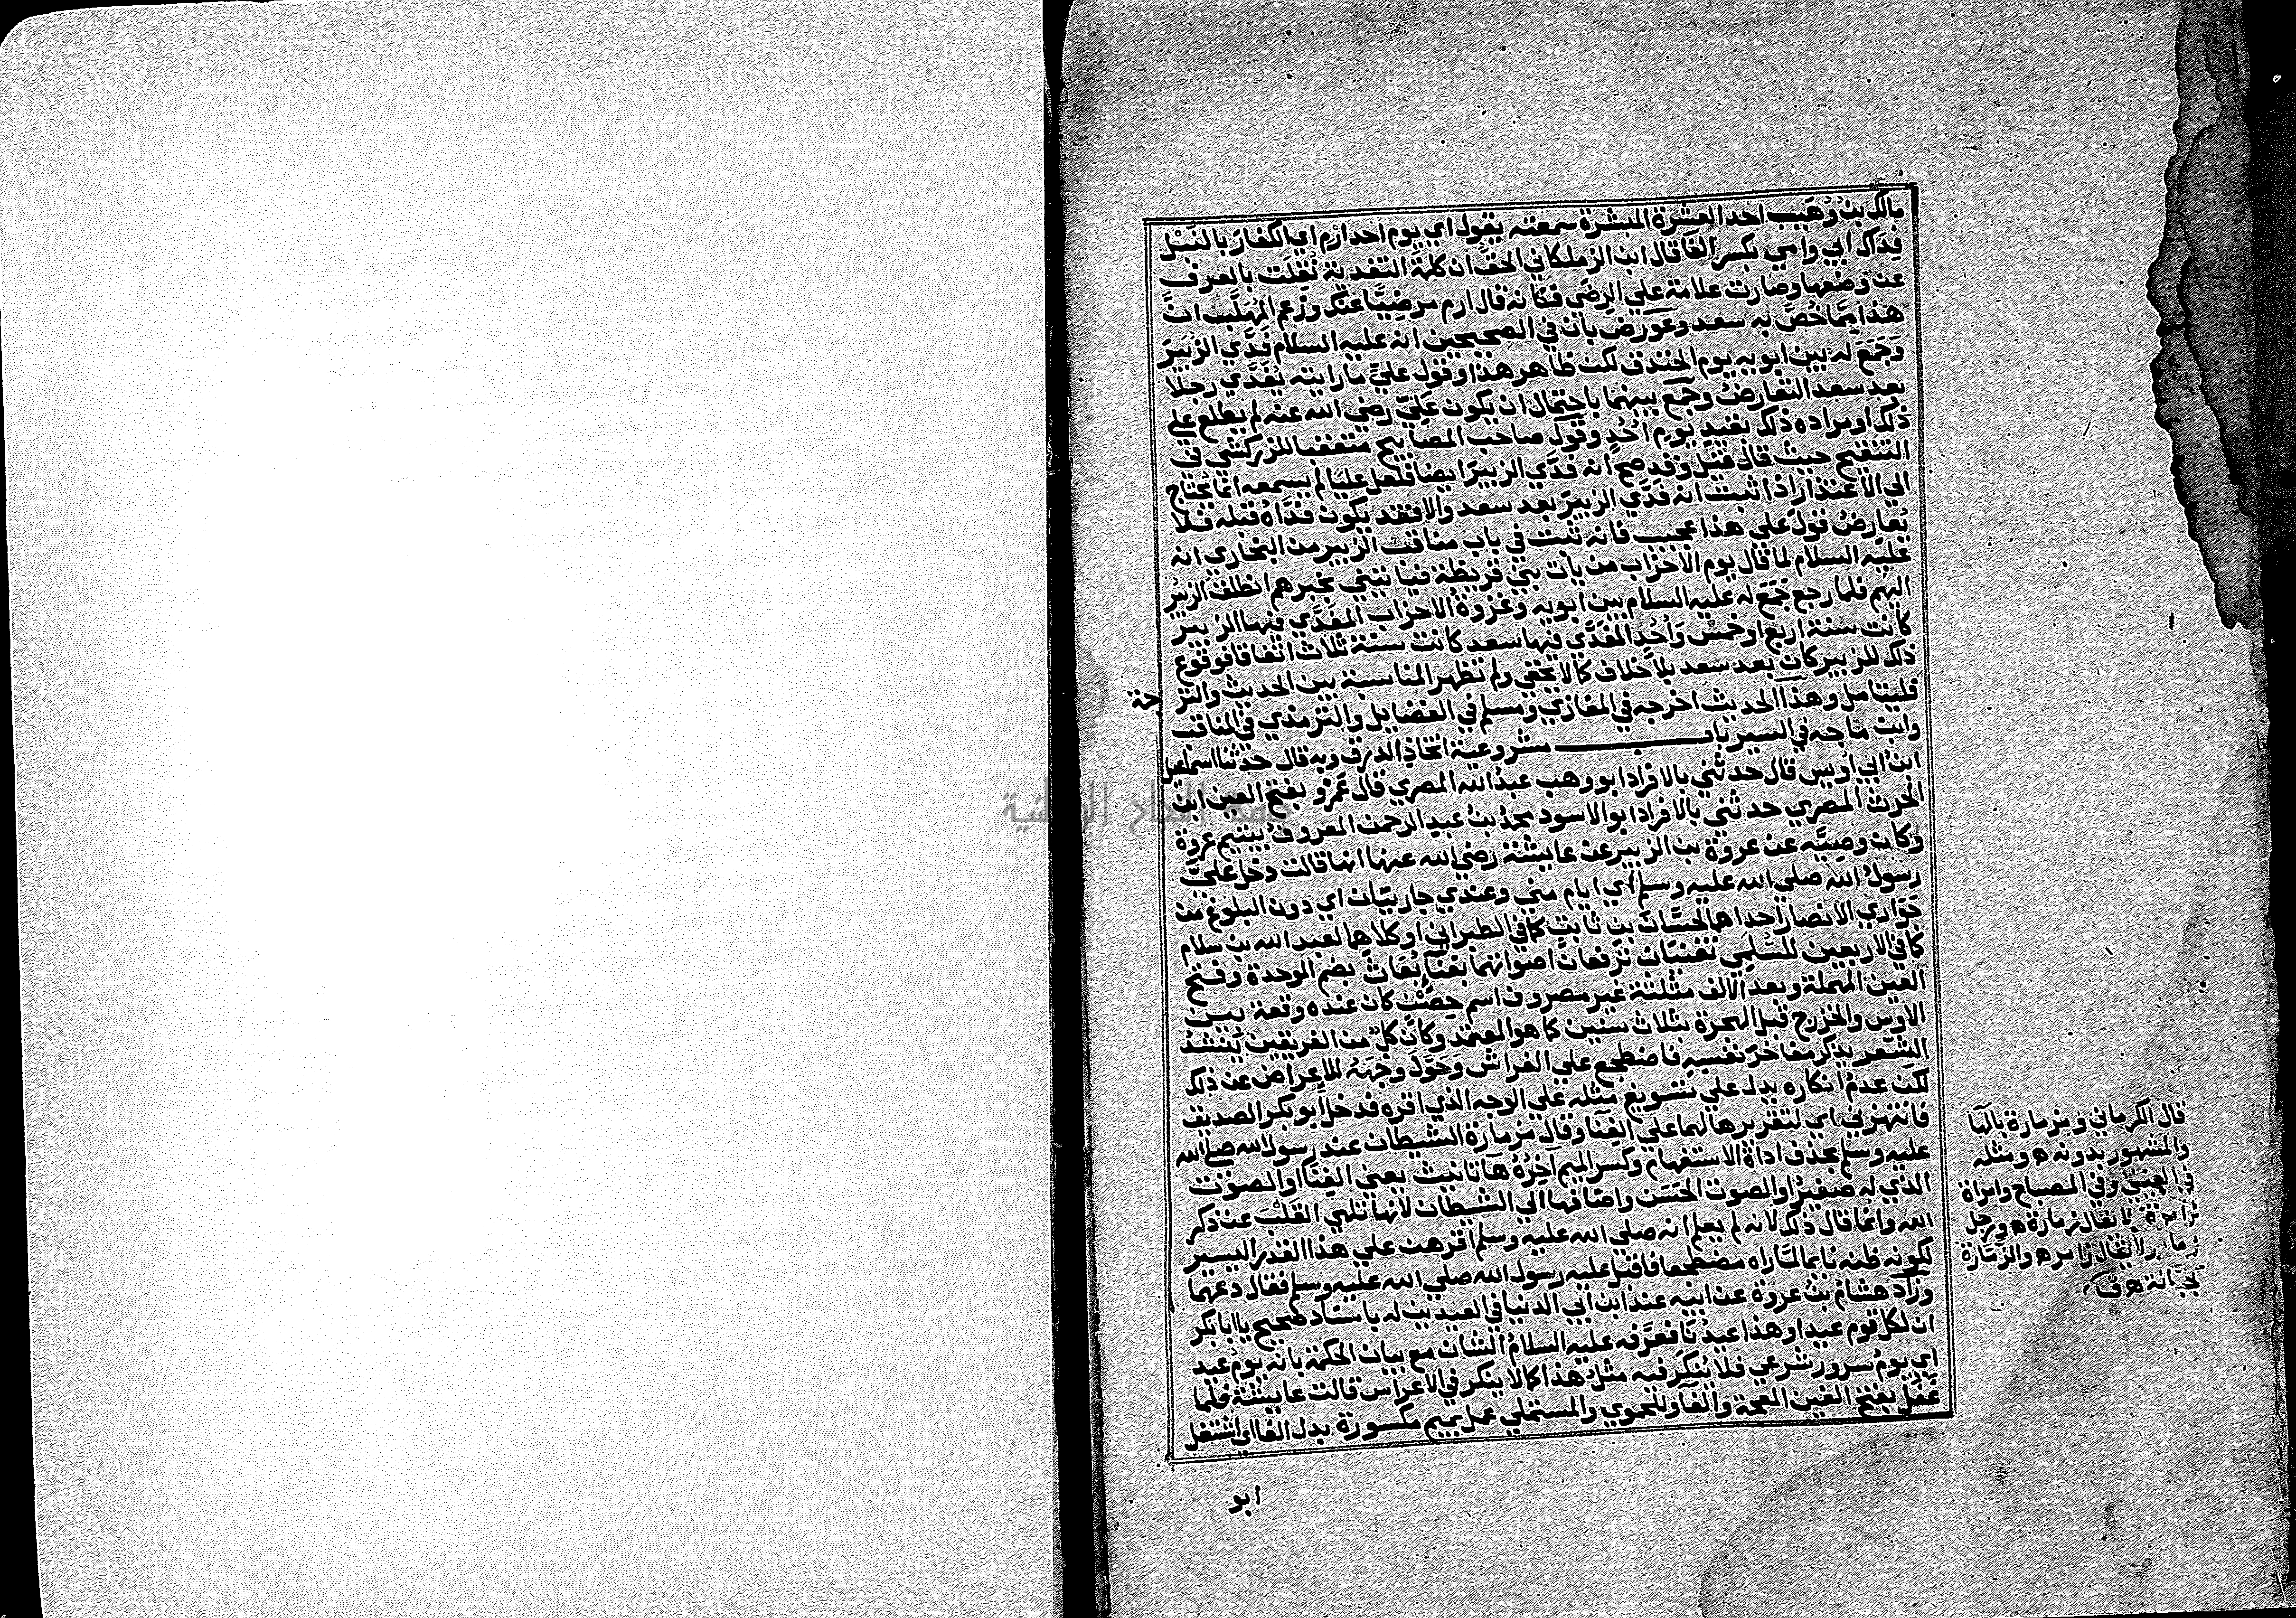 مالك بن وُهَيب احد العشرة المبشرة سمعته يقول اي يوم احد ارم اي الكفار بالنبل
فداك ابي وامي بكسر الفا قال ابن الزملكاني الحق ان كلمة التفدية نُقِلَت بالعرف
عن وضعها وصارت علامة علي الرضي فكانه قال ارم مرضيًا عنك وزعم المُهَلَّب انَّ
هذا مما خُصَّ به سعد وعورض بان في الصحيحين انه عليه السلام فَدَّي الزبيرَ
وَجَمَعَ له بين ابويه يوم الخندق لكن ظاهر هذا وقول عليّ ما رايته يُفَدَّي رجلا
بعد سعد التعارضُ وجمع بينهما باحتمال ان يكون عَلِيّ رضي الله عنه لم يطلع علي
ذلك او مراده ذلك بقيد يوم اُحُدٍ وقول صاحب المصابيح متعقبا للزركشي في
التنقيح حيث قال قيل وقد صح انه فدَّي الزبيرَ ايضا فلعل عليًا لم يسمعه انما يحتاج
الي الاعتذار اذا ثبت انه فدَّي الزبيرَ بعد سعد والا فقد يكون فدَّاهُ قبله فلا
يُعارِضُ قولَ علي هذا عجيب فانه ثبت في باب مناقب الزبير من البخاري انه
عليه السلام لما قال يوم الاحزاب من يات بني قريظة فياتيني بخبرهم انطلق الزبير
اليهم فلما رجع جَمَعَ له عليه السلام بين ابويه وغزوة الاحزاب المُفَدَّي فيها الزبير
كانت سنة اربع او خمس وَاُحُد المُفَدَّي فيها سعد كانت سنة ثلاث اتفاقا فوقوع
ذلك للزبير كان بعد سعد بلا خلاف كما لا يخفي ولم تظهر المناسبة بين الحديث والتر
جمة
فليتامل وهذا الحديث اخرجه في المغازي ومسلم في الفضايل والترمذي في المناقب
وابن ماجه في السير باب مشروعية اتخاذ الدرق وبه قال حدثنا اسماعيل
ابن ابي اويس قال حدثني بالافراد ابو وهب عبد الله المصري قال عَمرو بفتح العين ابن
الحرث المصري حدثني بالافراد ابو الاسود محمد بن عبد الرحمن المعروف بيتيم عروة
وكان وصيَّه عن عروة بن الزبير عن عايشة رضي الله عنها انها قالت دخل عليّ
رسولُ الله صلي الله عليه وسلم اي ايام مني وعندي جاريتان اي دون البلوغ من
جَوَاري الانصار احداهما لحسَّان بن ثابت كما في الطبراني او كلاهما لعبد الله بن سلام
كما في الاربعين للسُّلمي تغنيان ترفعان اصواتهما بغناء بُعاث بضم الموحدة وفتح
العين المهملة وبعد الالف مثلثة غير مصروف اسم حِصْنٍ كان عنده وقعة بين
الاوس والخزرج قبل الهجرة بثلاث سنين كما هو المعتمد وكان كل من الفريقين يُنشد
الشعر يذكر مفاخرَ نفسِهِ فاضطجع علي الفراش وَحَوَّلَ وجهَهُ للاعراض عن ذلك
لكن عدم انكاره يدل علي تسويغ مثله علي الوجه الذي اقره فدخل ابو بكر الصديق
فانتهرني اي لتقريرها لهما علي الغِنا وقال مزمارة الشيطان عند رسول الله صلي الله
عليه وسلم بحذف اداة الاستفهام وكسر الميم آخِرُهُ هَا تانيث يعني الغِنا او الصوت
الذي له صفيرٌ او الصوت الحَسَن واضافها الي الشيطان لانها تلهي القَلبَ عن ذكر
الله وانما قال ذلك لانه لم يعلم انه صلي الله عليه وسلم اقرهن علي هذا القدر اليسير
لكونه ظنه نايما لَمَّا راه مضطجعا فاقبل عليه رسول الله صلي الله عليه وسلم فقال دعهما
وزاد هشام بن عروة عن ابيه عند ابن ابي الدنيا في العيدين له باسناد صحيح يا ابا بكر
ان لكل قوم عيدا وهذا عيدُنا فعرَّفه عليه السلامُ الشان مع بيان الحكمة بانه يومُ عيد
اي يومُ سرور شرعي فلا يُنكَر فيه مثلُ هذا كما لا ينكر في الاعراس قالت عايشة فلما
غَفَلَ بفتح الغين المعجمة والفا وللحموي والمستملي عمل بميم مكسورة بدل الفا اي اشتغل
ابو
قال الكرماني ومزمارة بالها
والمشهور بدونه ه ومثله
في العيني وفي المصباح وامراة
زامرة ولا يقال زمارة ه ورجل
زمار ولا يقال زامر ه والزَّمَّارة